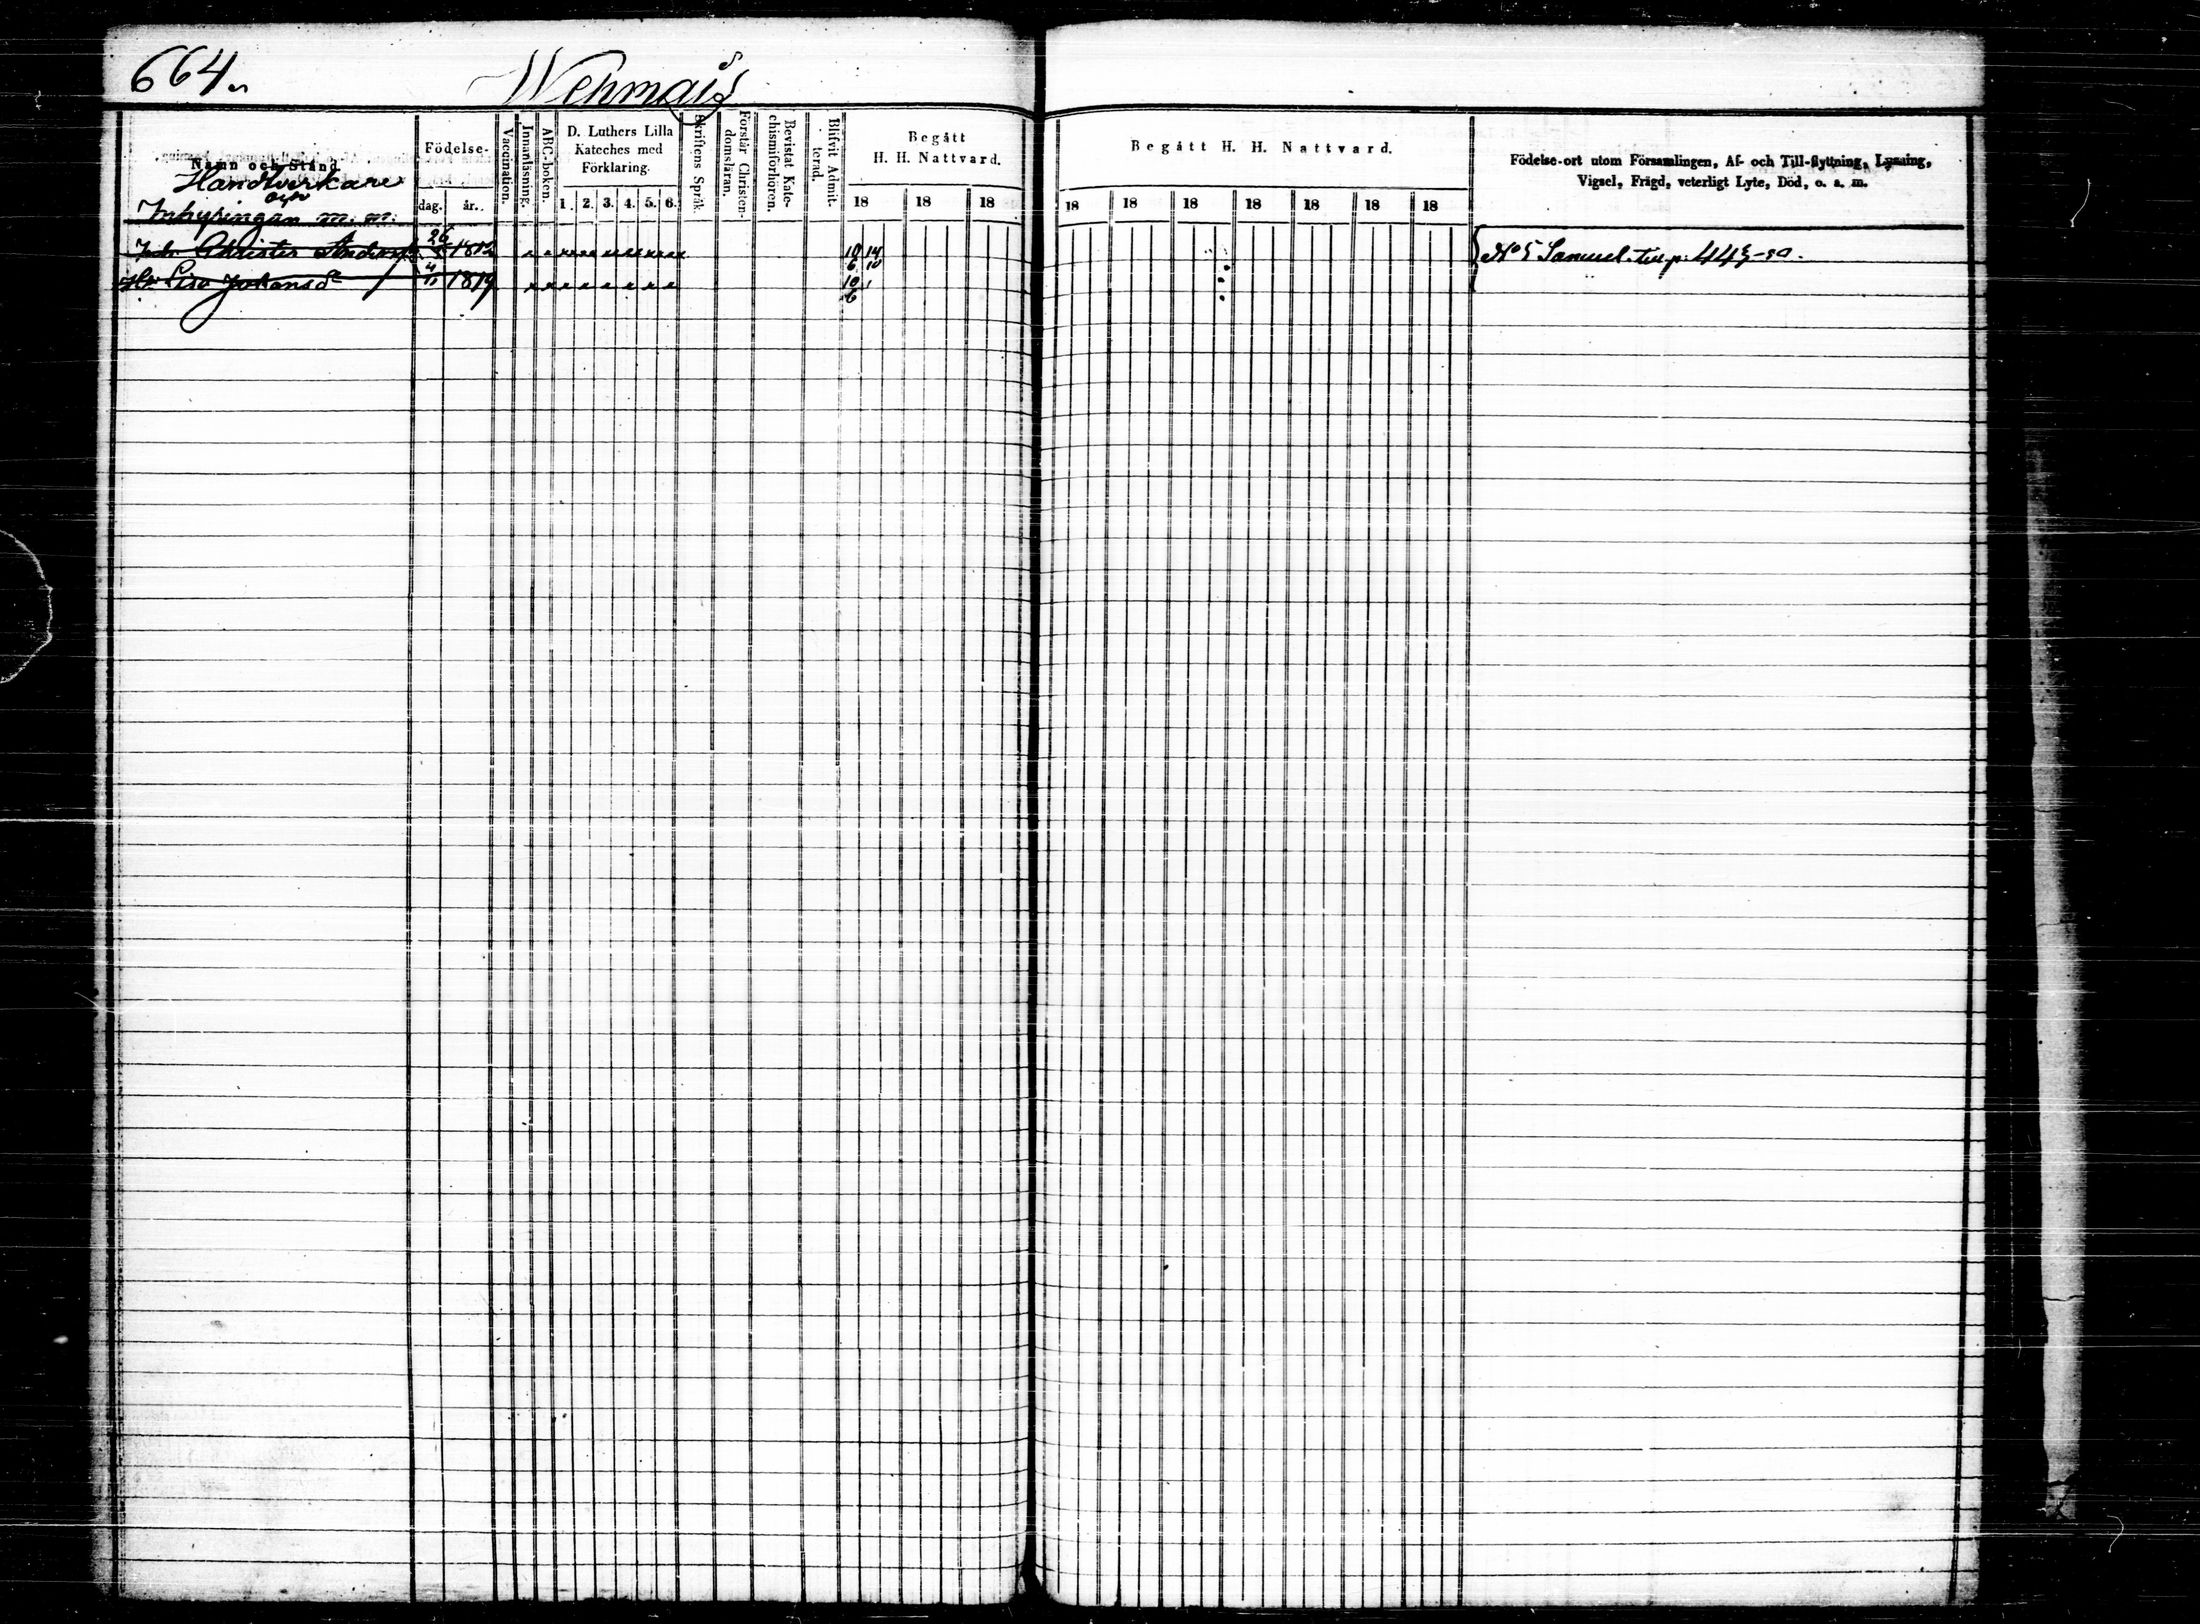 664.
Wehmais
Namn och Stånd
Handtverkare
och
Inhysingar m. m.
Födelse-
dag. år.
Vaccination.
Innanläsning.
ABC-boken.
D. Luthers Lilla
Kateches med
Förklaring.
1. 2. 3. 4. 5. 6.
Skriftens Språk.
Förstår Christen-
domsläran.
Bevistat Kate-
chismiförhören.
Blifvit Admit-
terad.
Begått
H. H. Nattvard.
18 18 18
Begått H. H. Nattvard.
18 18 18 18 18 18 18
Födelse-ort utom Församlingen, Af- och Till-flyttning, Lysning,
Vigsel, Frägd, veterligt Lyte, Död, o. s. m.
Christer Anders 26 1812 10 14
6 10
No 5 Samuel till p. 443
Lisa Johansd 1819 10
6